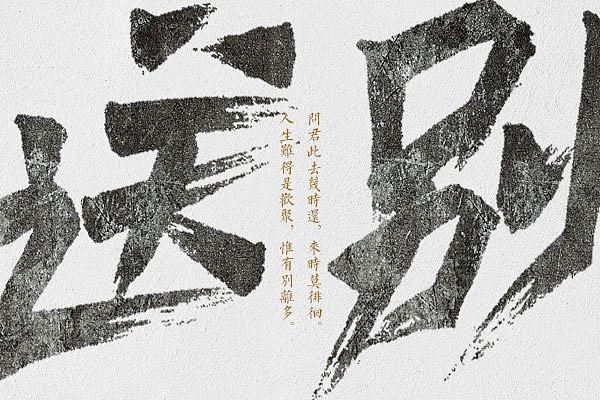 送别
問君此去幾時還，來時莫徘徊。
人生難得是歡聚，惟有別離多。